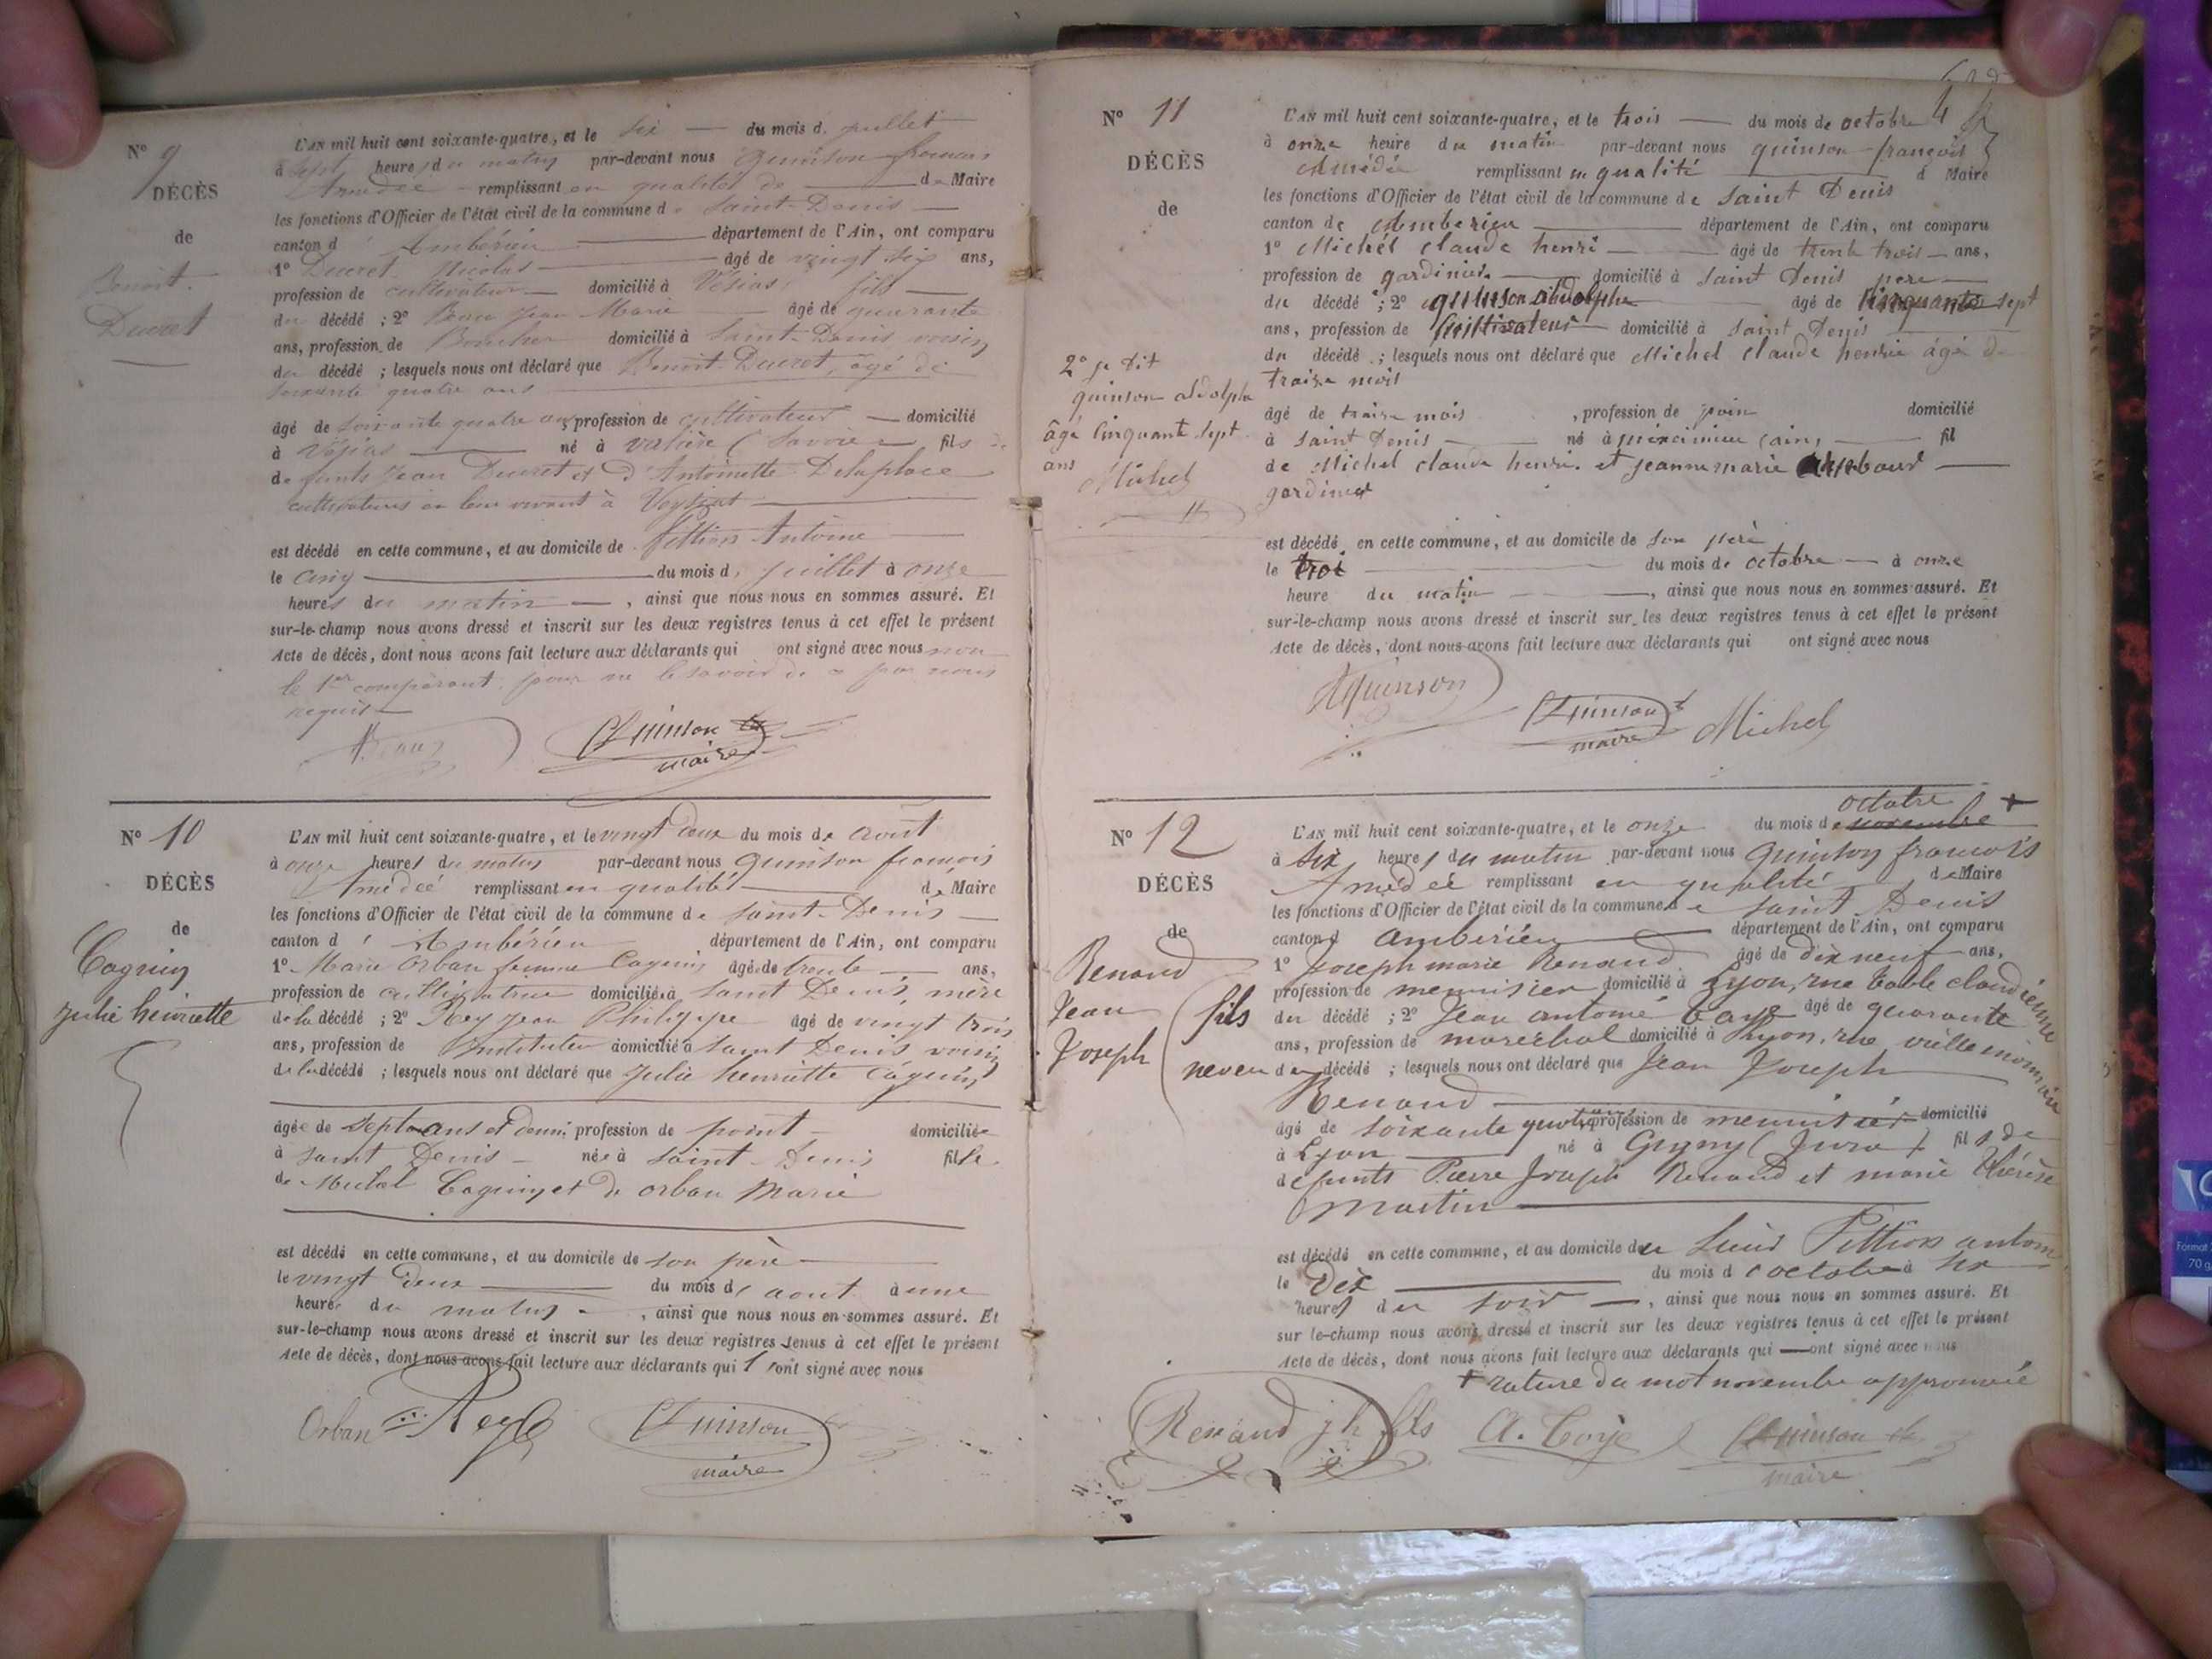 Nº 9
DÉCÈS
de
Benoit
Ducret
L'AN mil huit cent soixante-quatre, et le six du mois d. juillet
à sept heures du matin par-devant nous Quinson françois
Amédée remplissant en qualité de de Maire
les fonctions d'Officier de l'état civil de la commune de Saint-Denis
canton d' Ambérieu département de l'Ain, ont comparu
1º Ducret Nicolas âgé de vingt six ans,
profession de cultivateur domicilié à fils
du décédé ; 2º Jean Marie âgé de quarante
ans, profession de Boucher domicilié à Saint-Denis voisin
du décédé ; lesquels nous ont déclaré que Benoit Ducret, âgé de
soixante quatre ans
âgé de soixante quatre ans profession de cultivateur domicilié
à né à valoire (Savoie) fils
de funts Jean Ducret et d'Antoinette Delaplace
cultivateurs en leur vivant à
est décédé en cette commune, et au domicile de Pittion Antoine
le cinq du mois d. juillet à onze
heures du matin, ainsi que nous nous en sommes assuré. Et
sur-le-champ nous avons dressé et inscrit sur les deux registres tenus à cet effet le présent
Acte de décès, dont nous avons fait lecture aux déclarants qui ont signé avec nous non
le 1er comparant pour ne le savoir de ce par nous
requis
Quinson
maire
Nº 10
DÉCÈS
de
Coguin
julie henriette
L'AN mil huit cent soixante-quatre, et le vingt deux du mois de Août
à onze heures du matin par-devant nous Quinson françois
Amédeé remplissant en qualité de Maire
les fonctions d'Officier de l'état civil de la commune de Saint-Denis
canton d' Ambérieu département de l'Ain, ont comparu
1º Marie Orban femme Coguin âgé de trente ans,
profession de cultivatrice domicilié à Saint Denis, mère
de la décédé ; 2º Rey Jean Philippe âgé de vingt trois
ans, profession de Instituteur domicilié à Saint Denis voisin
de la décédé ; lesquels nous ont déclaré que Julie henriette Coguin
âgée de Sept ans et demi profession de point domiciliée
à Saint Denis née à Saint-Denis fille
de Michel Coguin et de Orban Marie
est décédé en cette commune, et au domicile de son père
le vingt deux du mois d' aout à une
heure du matin, ainsi que nous nous en sommes assuré. Et
sur-le-champ nous avons dressé et inscrit sur les deux registres tenus à cet effet le présent
Acte de décès, dont nous avons fait lecture aux déclarants qui ont signé avec nous
Orban Rey Quinson
maire
Nº 11
DÉCÈS
de
2º je dit
quinson adolphe
âgé Cinquante sept
ans
Michel
L'AN mil huit cent soixante-quatre, et le trois du mois de octobre
à onze heure du matin par-devant nous quinson françois
Amédée remplissant en qualité d Maire
les fonctions d'Officier de l'état civil de la commune de Saint Denis
canton de Amberieu département de l'Ain, ont comparu
1º Michel claude henri âgé de trente trois ans,
profession de gardinier domicilié à Saint Denis pere
du décédé ; 2º quinson adolphe âgé de Cinquante sept
ans, profession de Cultivateur domicilié à Saint Denis
du décédé ; lesquels nous ont déclaré que Michel claude henrie âgé de
traize mois
âgé de traize mois, profession de poin domicilié
à Saint Denis né à méximieu (ain) fil
de Michel claude henri. et jeanne marie
gardinier
est décédé en cette commune, et au domicile de son père
le troi du mois de octobre à onze
heure du matin, ainsi que nous nous en sommes assuré. Et
sur-le-champ nous avons dressé et inscrit sur les deux registres tenus à cet effet le présent
Acte de décès, dont nous avons fait lecture aux déclarants qui ont signé avec nous
AQuinson Quinson Michel
maire
Nº 12
DÉCÈS
de
Renaud
Jean
Joseph
fils
neveu
octobre +
L'AN mil huit cent soixante-quatre, et le onze du mois de novembre
à Six heures du matin par-devant nous Quinson françois
Amédeé remplissant en qualité de Maire
les fonctions d'Officier de l'état civil de la commune de Saint Denis
canton d Ambérieu département de l'Ain, ont comparu
1º Joseph marie Renaud âgé de dix neuf ans,
profession de menuisier domicilié à Lyon, rue table claudienne
du décédé ; 2º Jean antoine Coye âgé de quarante
ans, profession de maréchal domicilié à Lyon, rue vieille monnaie
du décédé ; lesquels nous ont déclaré que Jean Joseph
Renaud
âgé de soixante quatre ans profession de menuisier domicilié
à Lyon né à Gigny (Jura) fils de
defunts Pierre Joseph Renaud et marie thérèse
Martin
est décédé en cette commune, et au domicile du Sieur Pittion antoine
le Dix du mois d'octobre à six
heures du soir, ainsi que nous nous en sommes assuré. Et
sur le-champ nous avons dressé et inscrit sur les deux registres tenus à cet effet le présent
Acte de décès, dont nous avons fait lecture aux déclarants qui ont signé avec nous
+ rature du mot novembre approuvée
Renaud jh fils A. Coye Quinson
maire
Format
70 g